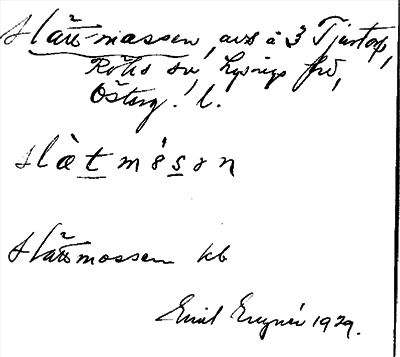 Slättmossen, avs å 3 Tjustorp,
Röks sn, Lysings hd,
Österg. l.
slàtmósɘn
Slättmossen kb
Emil 1929.